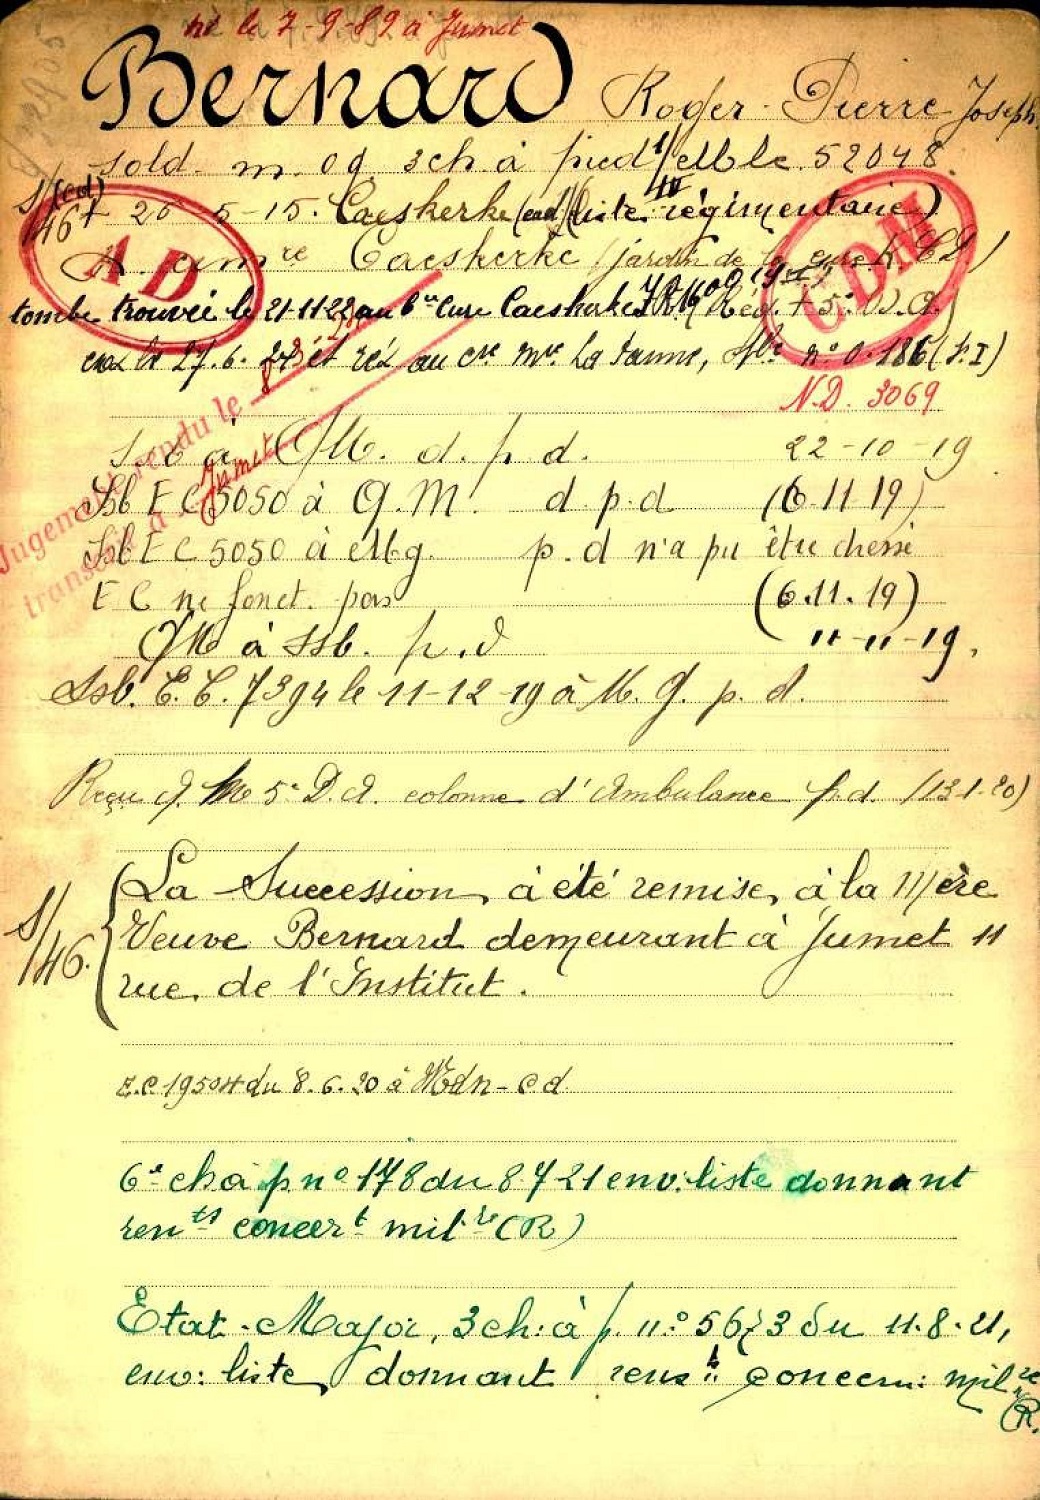 né le 7-9-89 à Jumet
Bernard Roger-Pierre Joseph
sold. m. 3 ch à pied Mle 52048
+ 20 5-15. Caeskerke (liste régimentaire)
Caeskerke (jardin de la cure
AD
GDM
tombe trouvée le 21-11-22 au Cure Caeskerke
27.6. 24 et au La Panne, n° 0.186 (P.I)
N.D. 3069
Jugement rendu le
transcrit à Jumet
à G.M. d. p. d. 22-10-19
Ssb E C 5050 à G.M. d.p.d (6.11.19)
Ssb E C 5050 à p.d n'a pu être dressé
E C ne fonct. pas (6.11.19)
GM à Ssb. p.d 11-11-19.
Ssb. E.C. 7394 le 11-12-19 à M. G. p. d.
Reçu G. M 5e D.A. colonne d'Ambulance p.d. (13-1-20)
S/46. La Succession a été remise à la Mère
Veuve Bernard demeurant à Jumet 11
rue de l'Institut.
E.C 19504 du 8.6.20 à Mdn-cd
6e ch à p n° 178 du 8.7 21 env: liste donnant
rents concert milre (R)
Etat-Major, 3 ch: à p. n° 5673 du 11.8.21,
env: liste donnant rensts concern: milre
(R.